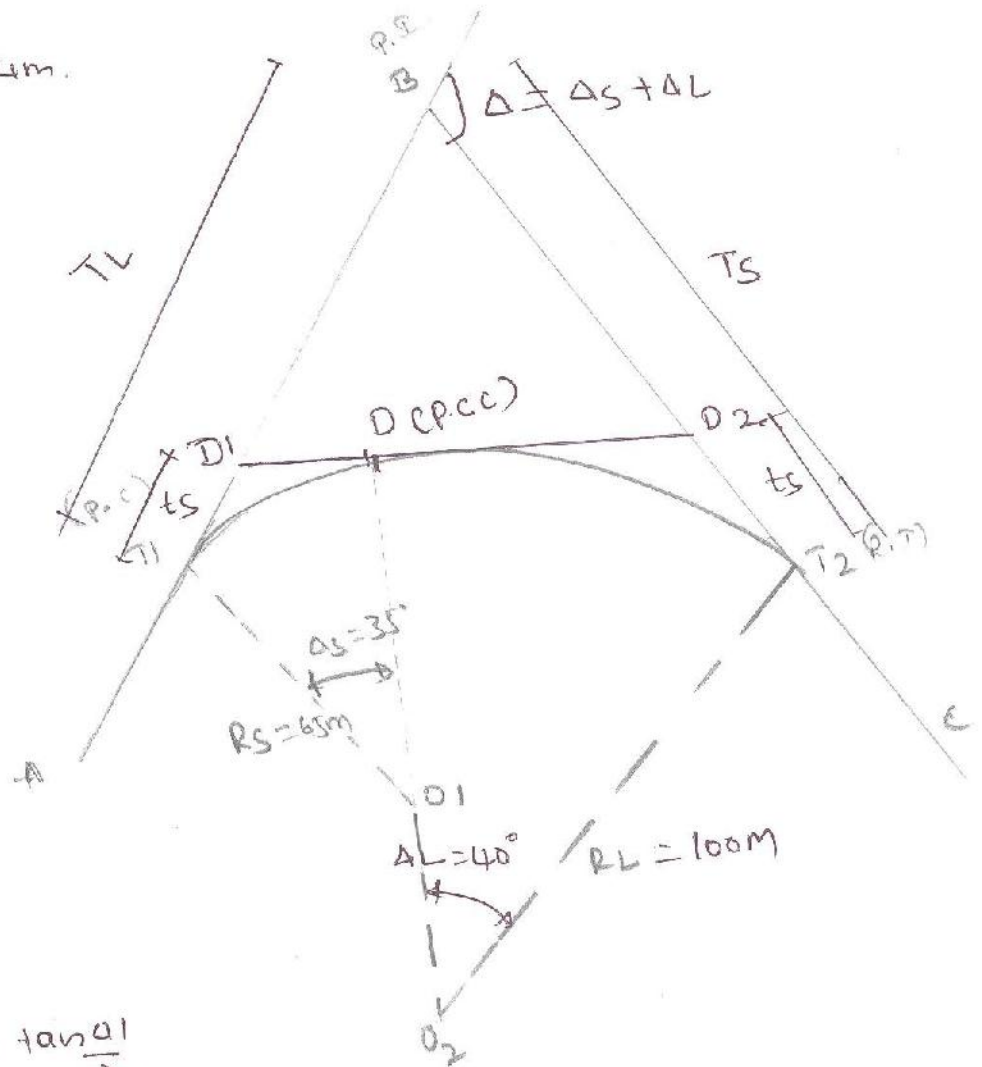 4m.
P.I
B
Δ = ΔS + ΔL
TL
TS
D (P.C.C)
D1
D2
(P.C)
tS
tS
T1
T2 (P.T)
ΔS=35°
RS=65M
A
C
O1
ΔL=40°
RL = 100M
O2
tan Δ1